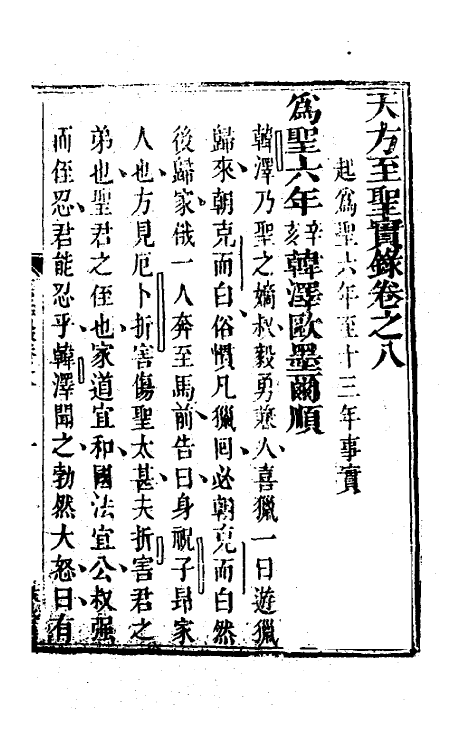 天方至聖實錄卷之八
起為聖六年至十三年事實
為聖六年辛亥韓澤歐墨爾順
韓澤乃聖之嫡叔毅勇兼人喜獵一日遊獵
歸來朝克而白俗慣凡獵囘必朝克而白然
後歸家俄一人奔至馬前告曰身祝子昂家
人也方見厄卜折害傷聖太甚夫折害君之
弟也聖君之侄也家道宜和國法宜公叔強
而侄忍君能忍乎韓澤聞之勃然大怒曰有